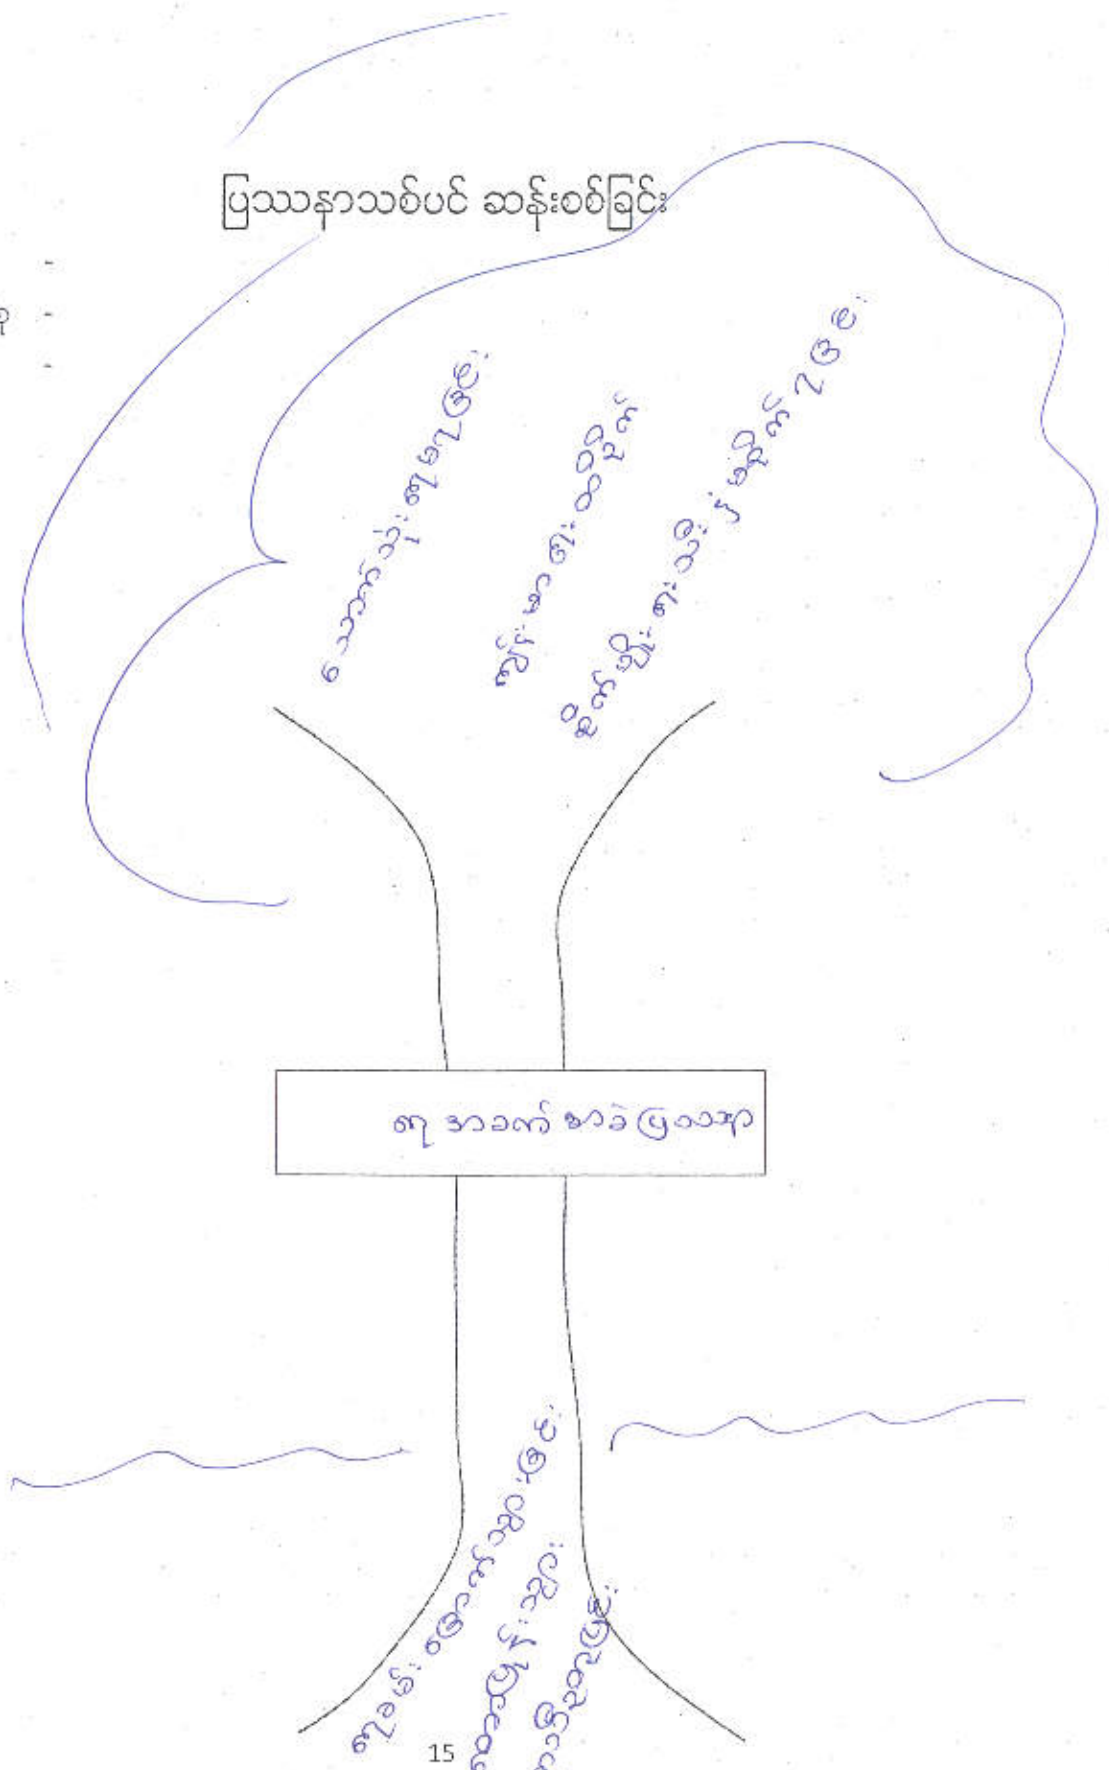 ပြဿနာသစ်ပင် ဆန်းစစ်ခြင်း
သောက်သုံးရေမရခြင်း
ကျန်းမာရေးထိခိုက်
စိုက်ပျိုးရေးသီးနှံမစိုက်ရခြင်း
ရေအခက်အခဲပြဿနာ
ရေခမ်းခြောက်သွားခြင်း
သွား
15